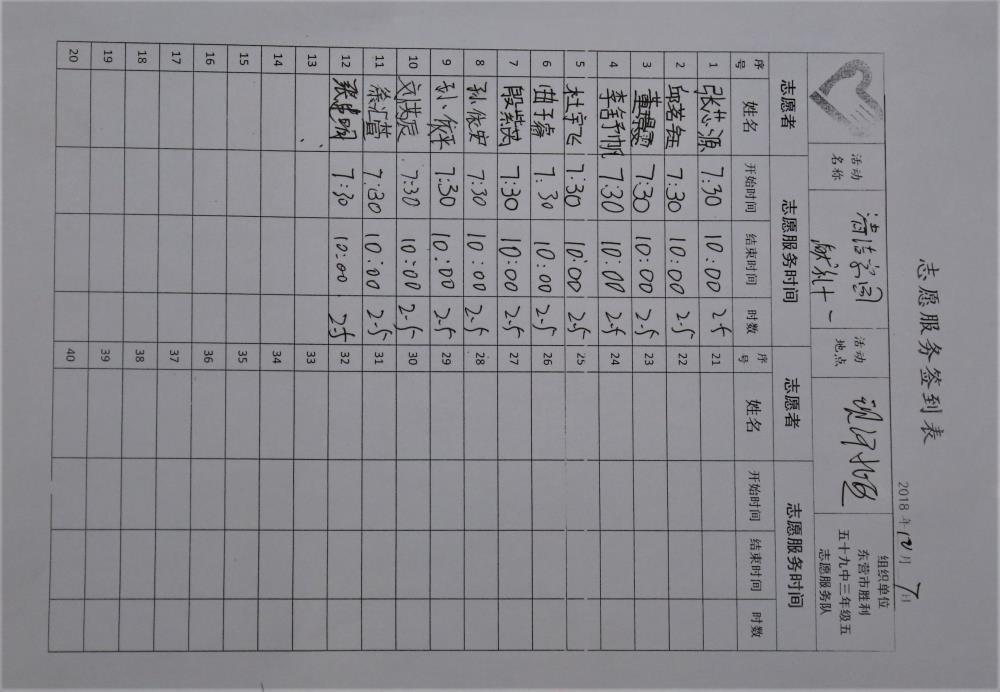 志愿服务签到表
2018 年 10 月 7 日
活动名称
清洁家园
献礼十一
活动地点
组织单位
东营市胜利
五十九中三年级五
志愿服务队
志愿者 志愿服务时间 志愿者 志愿服务时间
序号 姓名 开始时间 结束时间 时数 序号 姓名 开始时间 结束时间 时数
1 张芯源 7:30 10:00 2.5 21
2 邱茗钰 7:30 10:00 2.5 22
3 7:30 10:00 2.5 23
4 7:30 10:00 2.5 24
5 杜宇飞 7:30 10:00 2.5 25
6 曲子睿 7:30 10:00 2.5 26
7 殷紫茨 7:30 10:00 2.5 27
8 孙依安 7:30 10:00 2.5 28
9 孙依平 7:30 10:00 2.5 29
10 刘洪辰 7:30 10:00 2.5 30
11 徐汇萱 7:30 10:00 2.5 31
12 7:30 10:00 2.5 32
13 33
14 34
15 35
16 36
17 37
18 38
19 39
20 40